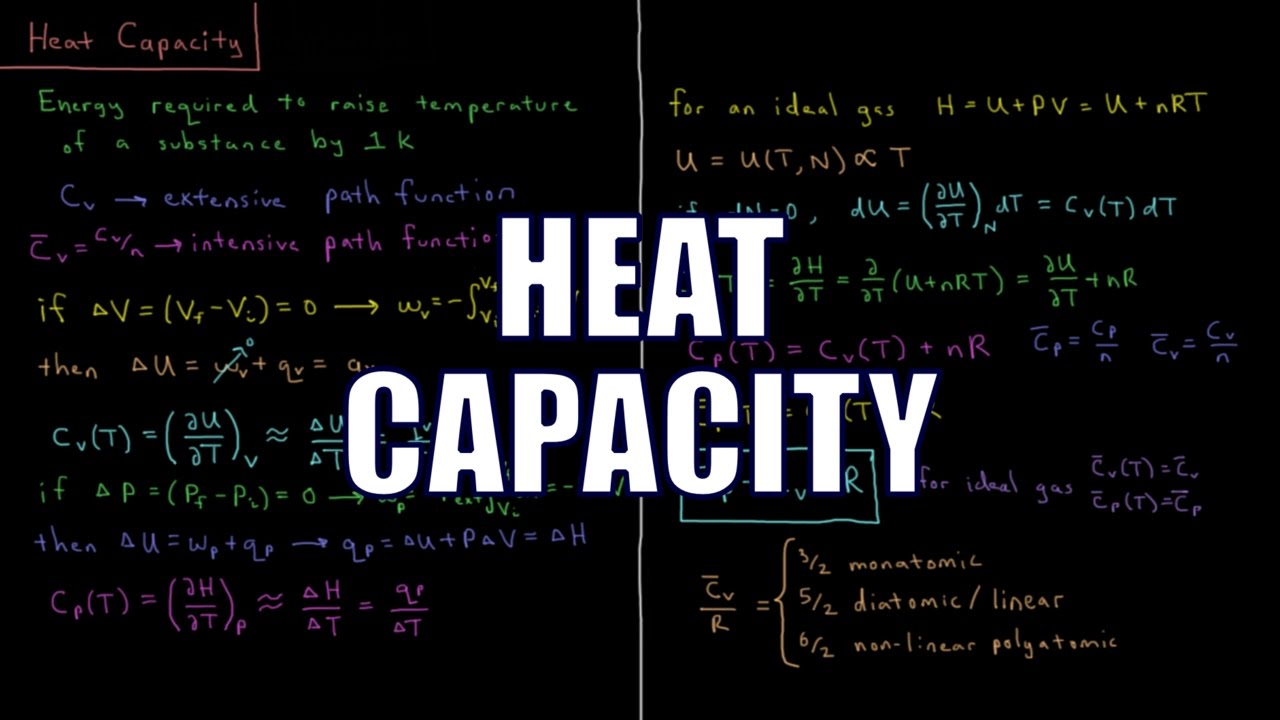 Heat Capacity
Energy required to raise temperature
of a substance by 1 K
C_v → extensive path function
C̅_v = C_v/n → intensive path
if ΔV = (V_f - V_i) = 0 → w_v = -∫
then ΔU = w_v↗0 + q_v =
C_v(T) = (∂U/∂T)_V ≈ ΔU/ΔT =
if ΔP = (P_f - P_i) = 0 →
then ΔU = w_p + q_p → q_p = ΔU + PΔV = ΔH
C_p(T) = (∂H/∂T)_P ≈ ΔH/ΔT = q_p/ΔT
for an ideal gas H = U + PV = U + nRT
U = U(T,N) ∝ T
if dN=0, dU = (∂U/∂T)_N dT = C_v(T) dT
= ∂H/∂T = ∂/∂T (U+nRT) = ∂U/∂T + nR
C_p(T) = C_v(T) + nR C̅_p = C_p/n C̅_v = C_v/n
R
for ideal gas C̅_v(T)=C̅_v
C̅_p(T)=C̅_p
C̅_v/R = { 3/2 monatomic
5/2 diatomic / linear
6/2 non-linear polyatomic
HEAT
CAPACITY